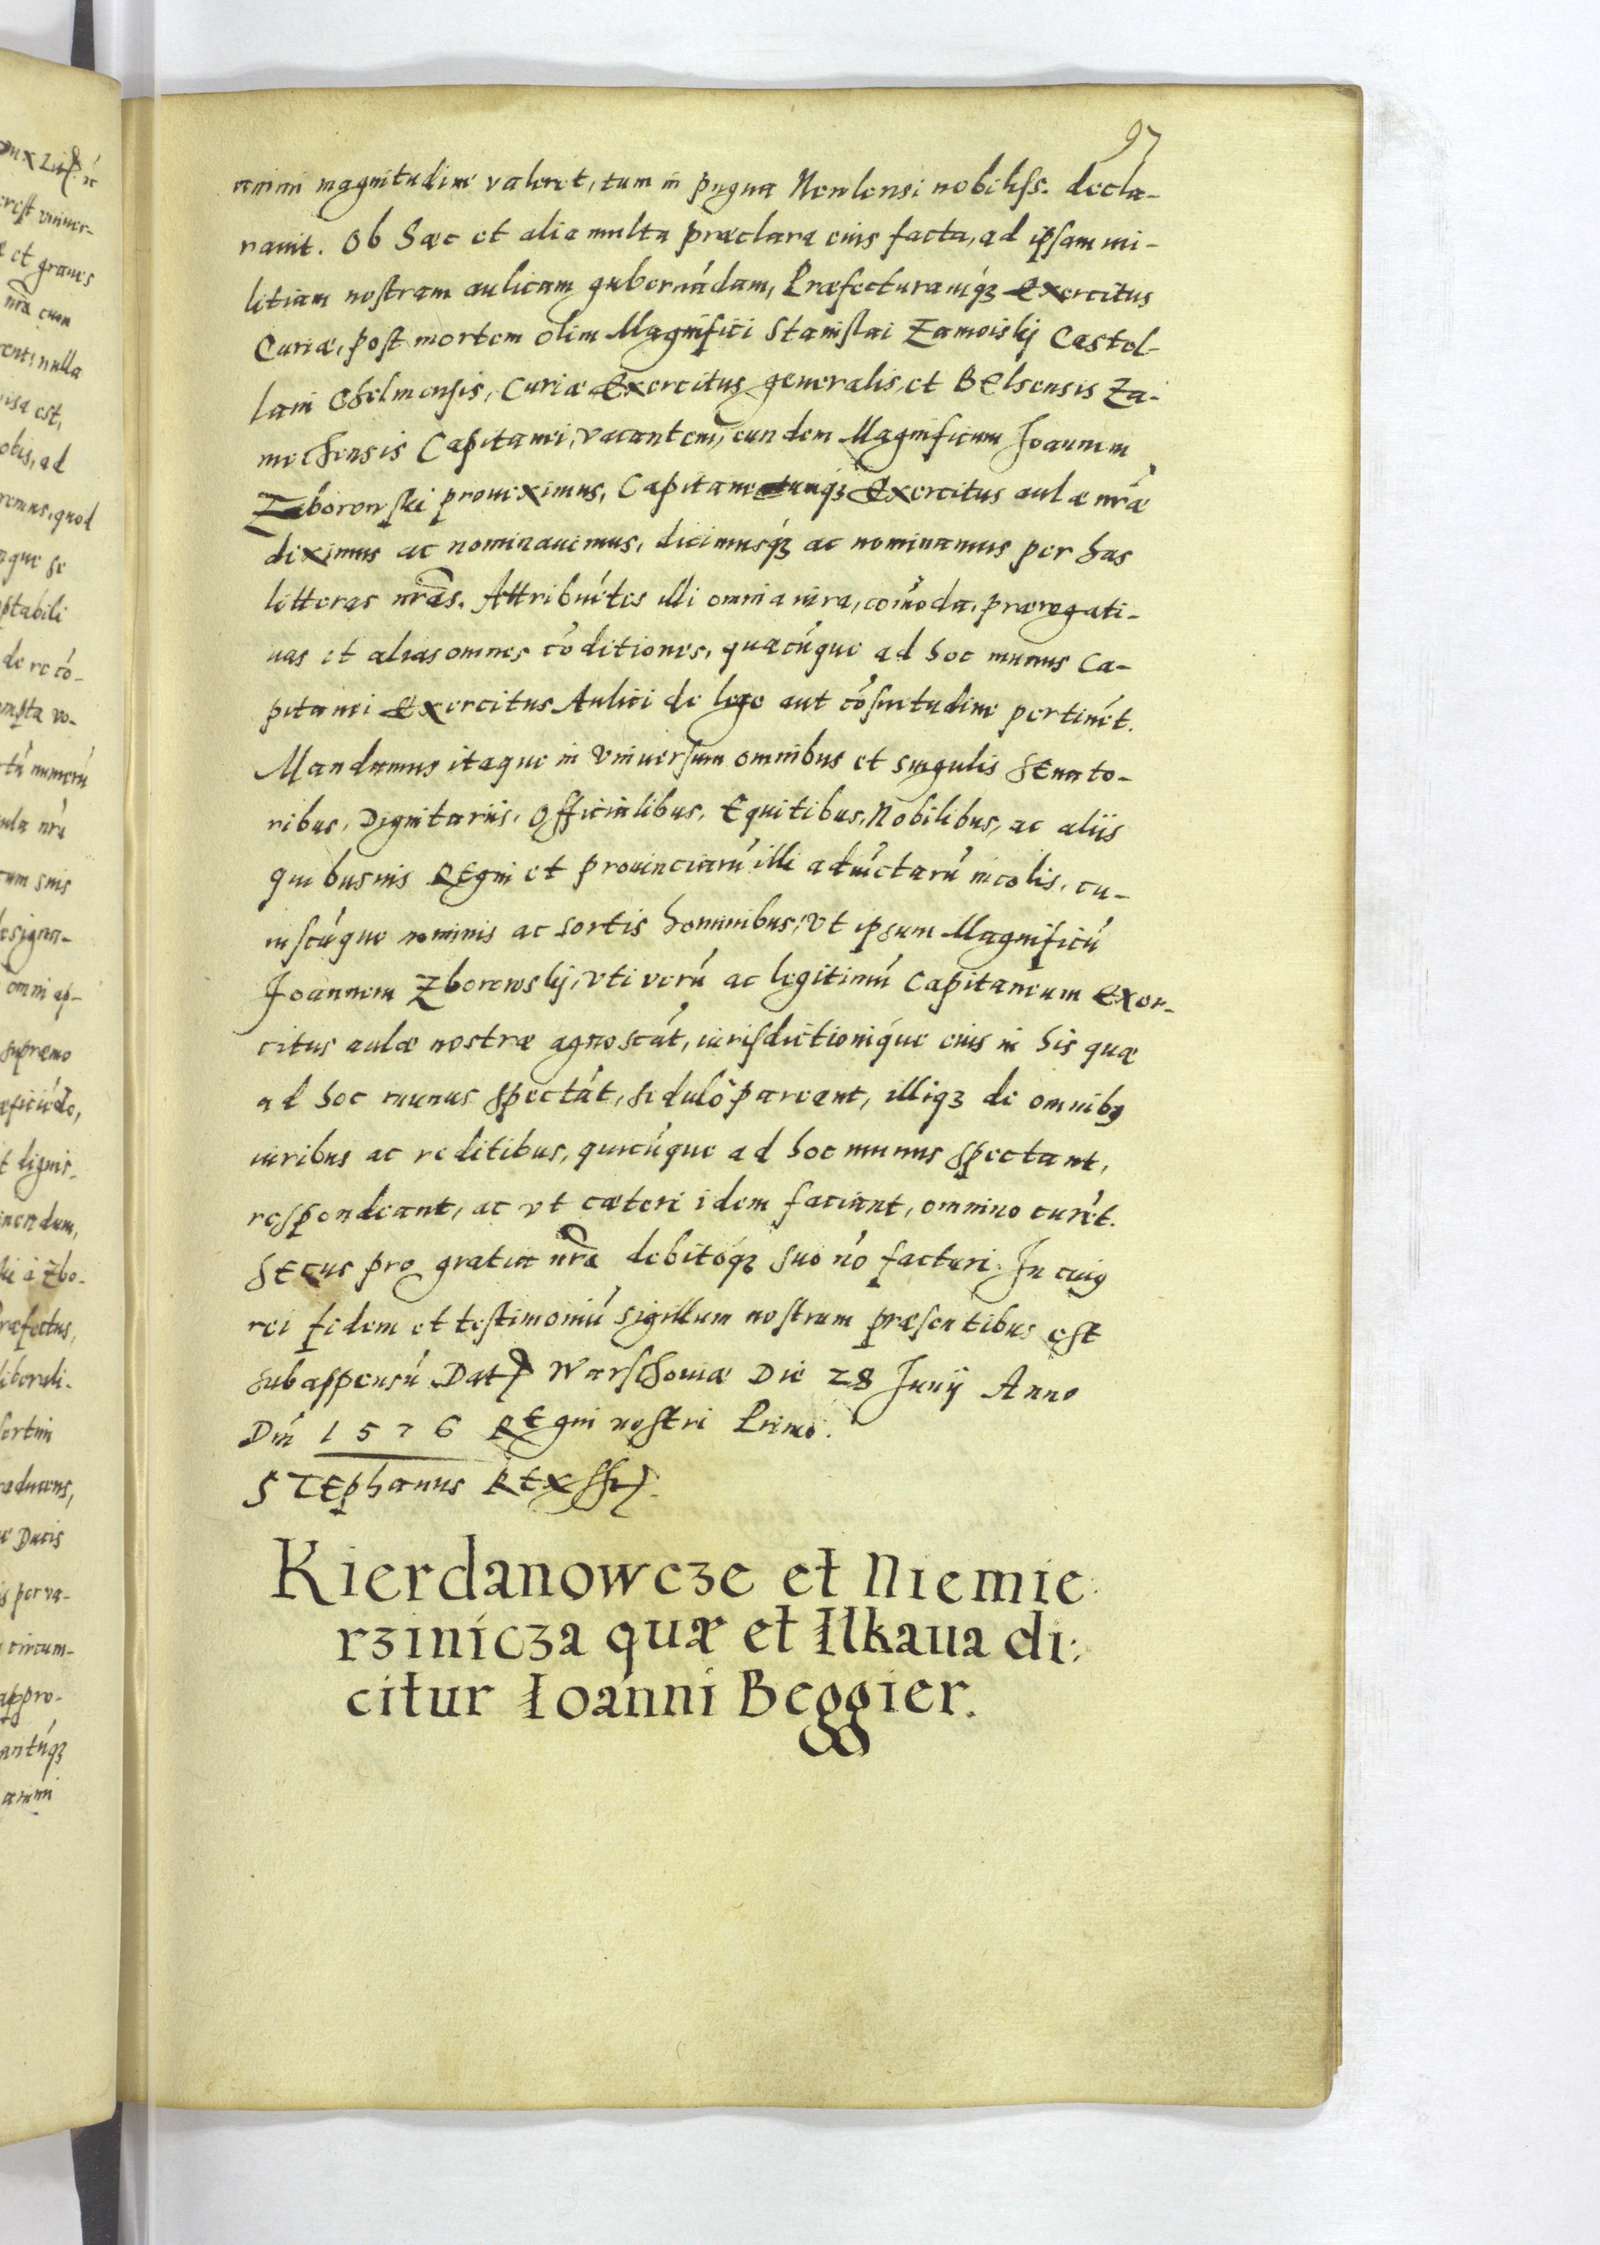 97
animi magnitudine valeret, tum in pugna Newlensi nobiliss. decla-
rauit. Ob haec et alia multa praeclara eius facta, ad ipsam mi-
litiam nostram aulicam gubernãdam, Praefecturamq́ꝫ Exercitus
Curiae, post mortem olim Magnifici Stanislai Zamoiskij Castel-
lani Chelmensis, Curiae Exercitus generalis, et BElsensis Za-
mechensis Capitanei, vacantem, eundem Magnificum Joannem
Zborowski proueximus, Capitaneumqꝫ Exercitus aulae nrãe
diximus ac nominauimus, dicimusq́ꝫ ac nominamus per has
litteras nrãs. Attribuẽtes illi omnia iura, com̃oda, prerogati-
uas et alias omnes cõditiones, quaecũque ad hoc munus Ca-
pitanei Exercitus Aulici de lege aut cõsuetudine pertinẽt.
Mandamus itaque in vniuersum omnibus et singulis SEnato-
ribus, Dignitariis, Officialibus, Equitibus, Nobilibus, ac aliis
quibusuis REgni et prouinciarũ illi adiũctarũ incolis, cu-
iuscũque nominis ac sortis hominibus, vt ipsum Magnificũ
Joannem Zborowskij, vti verũ ac legitimũ Capitaneum Exer-
citus aulae nostrae agnoscãt, iurisdictioniq́ue eius in his quae
ad hoc munus spectãt, sedulò pareant, illiqꝫ de omnibꝰ
iuribus ac reditibus, quicũque ad hoc munus spectant,
respondeant, ac vt caeteri idem faciant, omnino curẽt.
SEcus pro gratia nrã debitoq́ꝫ suo nõ facturi. In cuiꝰ
rei fidem et testimoniũ sigillum nostrum praesentibus est
subappensũ Dat Warschouiae Die 28 Junij Anno
Dñi 1576 REgni nostri Primo.
STEphanus REX sst
Kierdanowcze et Niemie
rzinícza quae et Ilkaua di:
citur Ioánni Beggier.